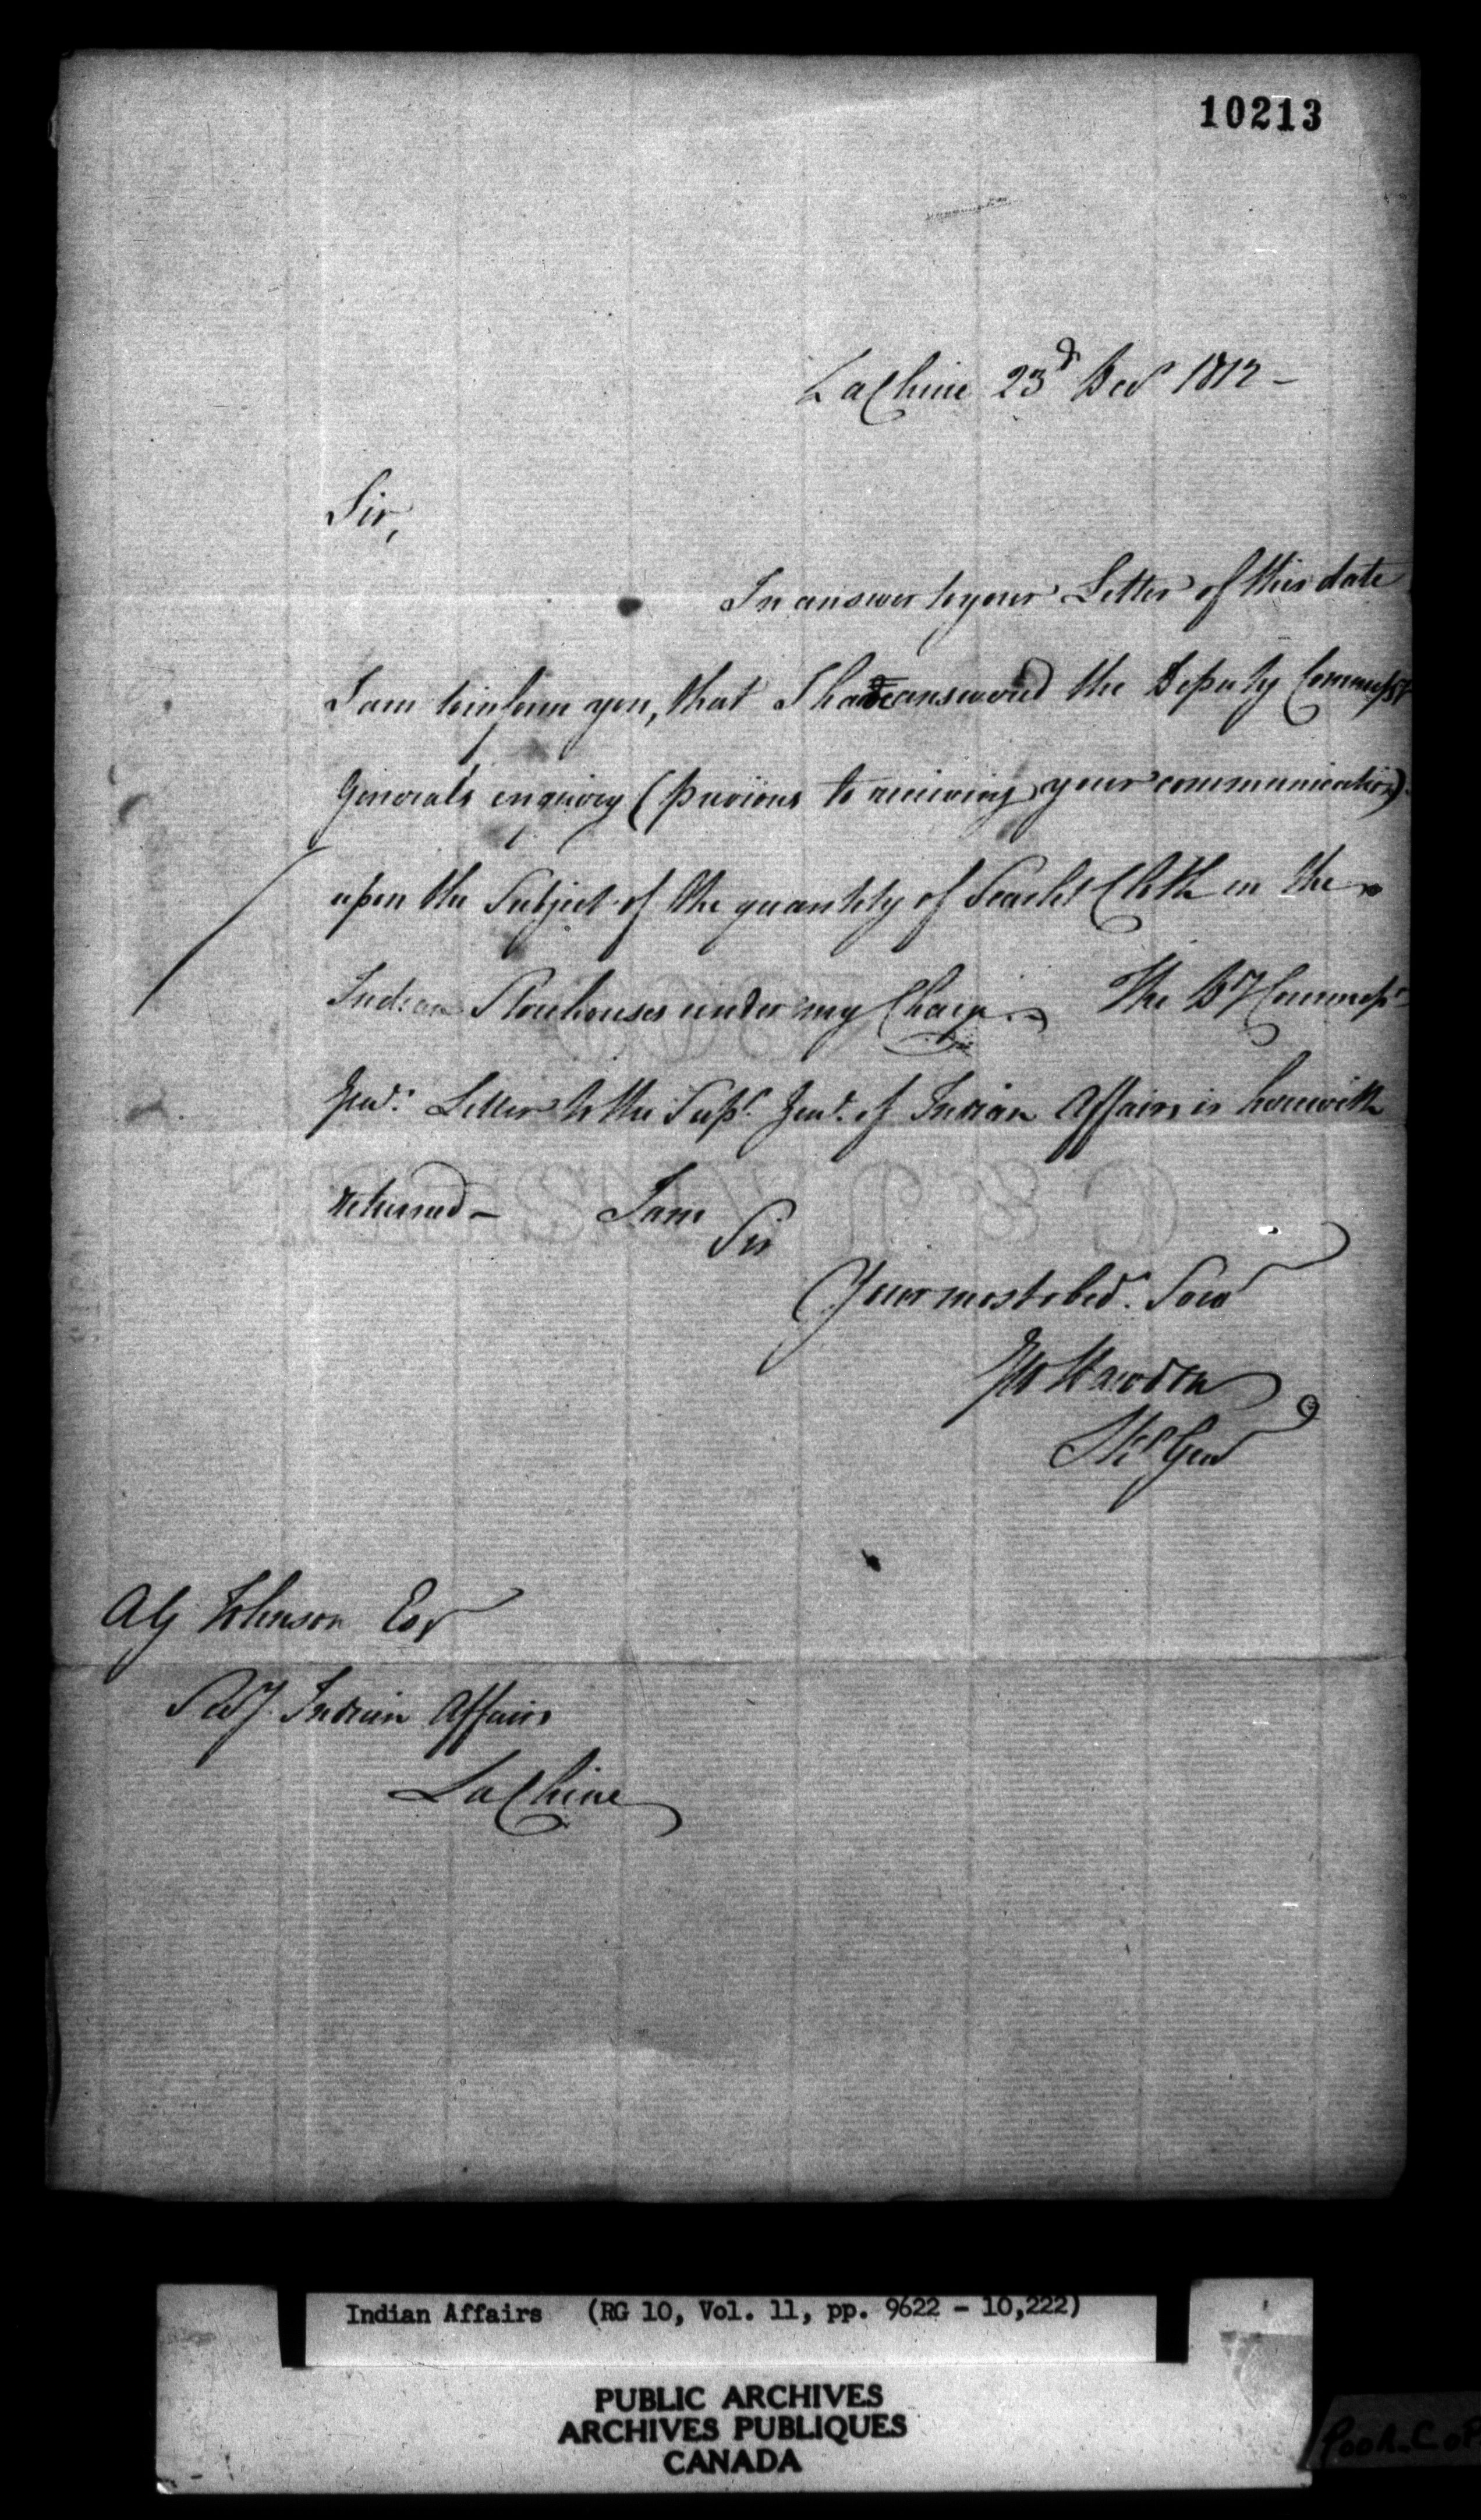 10213
LaChine 23d Decr 1812 -
Sir,
In answer to your Letter of this date
I am to inform you, that I had answered the Deputy Commissy
General's enquiry (previous to receiving your communication)
upon the Subject of the quantity of Scarlet Cloth in the
Indian Storehouses under my Charge. The Dy Commissy
Genl. Letter to the Supt. Genl. of Indian Affairs is herewith
returned - I am
Sir
Your most obedt. Servt
Hawdon
St Kr Genl
AG Johnson Esqr
Secy. Indian Affairs
LaChine
Indian Affairs (RG 10, Vol. 11, pp. 9622 - 10,222)
PUBLIC ARCHIVES
ARCHIVES PUBLIQUES
CANADA